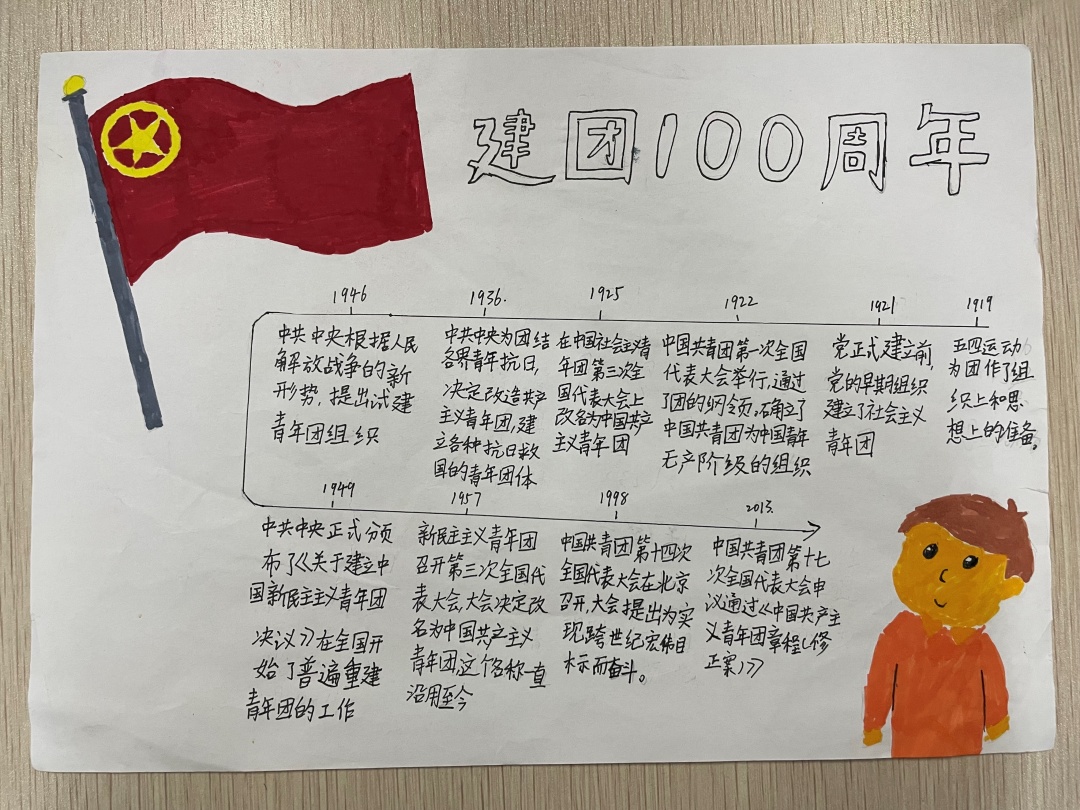 建团100周年
1946
中共中央根据人民
解放战争的新
形势，提出试建
青年团组织
1936.
中共中央为团结
各界青年抗日，
决定改造共产
主义青年团，建
立各种抗日救
国的青年团体
1925
在中国社会主义青
年团第三次全
国代表大会上
改名为中国共产
主义青年团
1922
中国共青团第一次全国
代表大会举行，通过
了团的纲领，确立了
中国共青团为中国青年
无产阶级的组织
1921
党正式建立前，
党的早期组织
建立了社会主义
青年团
1919
五四运动
为团作了组
织上和思
想上的准备。
1949
中共中央正式颁
布了《关于建立中
国新民主主义青年团
决议》在全国开
始了普遍重建
青年团的工作
1957
新民主主义青年团
召开第三次全国代
表大会，大会决定改
名为中国共产主义
青年团，这个名称一直
沿用至今
1998
中国共青团第十四次
全国代表大会在北京
召开，大会提出为实
现跨世纪宏伟目
标而奋斗。
2013.
中国共青团第十七
次全国代表大会审
议通过《中国共产主
义青年团章程（修
正案）》